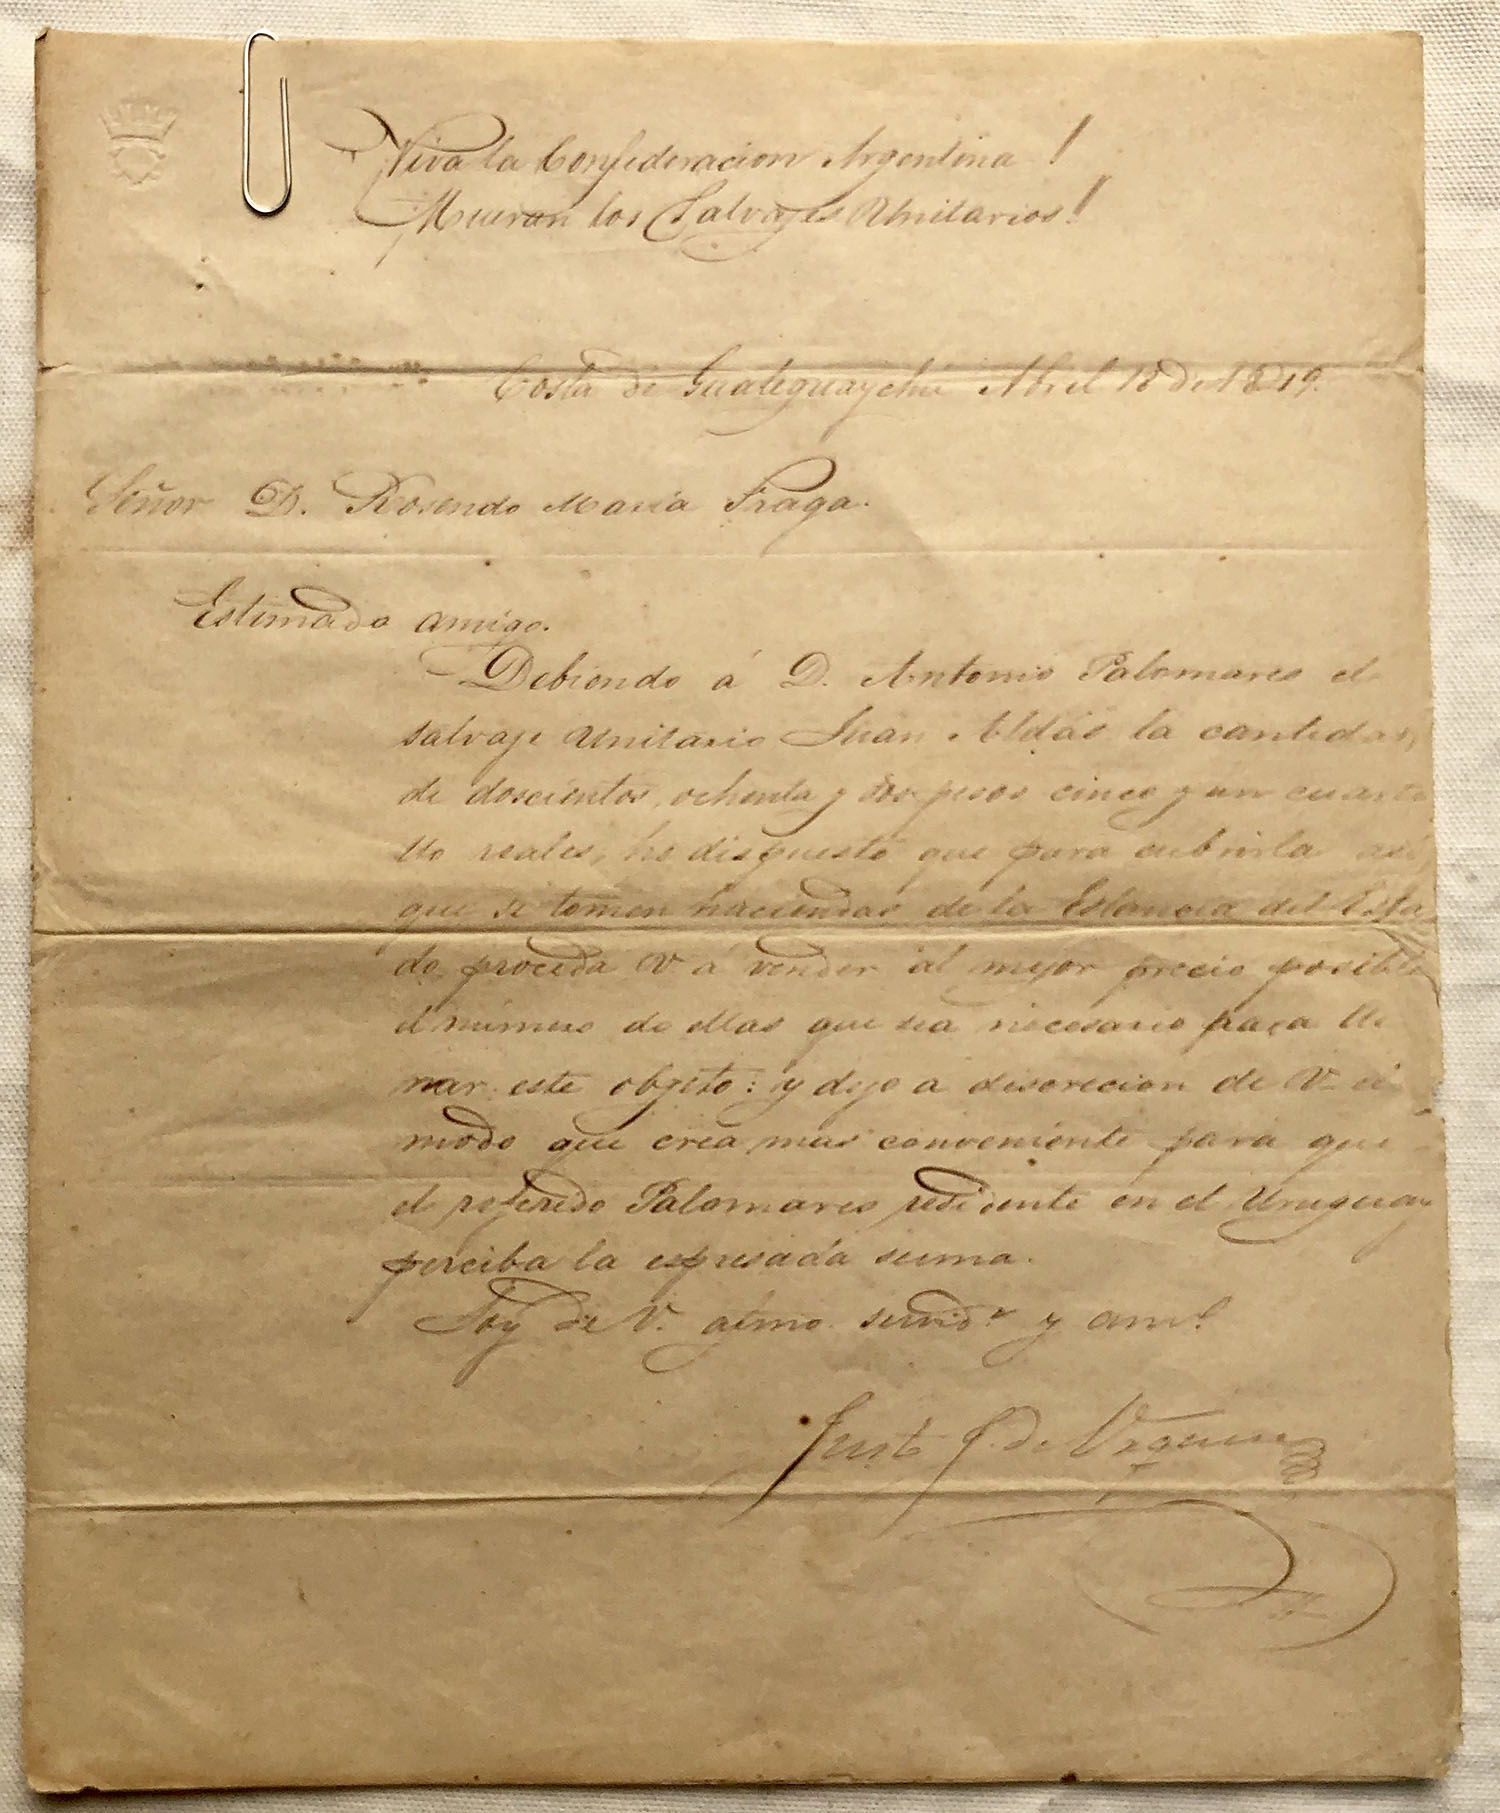 Viva la Confederacion Argentina!
Mueran los Salvages Unitarios!!
Costa de Gualeguaychú Abril 18 de 1849.
Señor D. Rosendo Maria Fraga.
Estimado amigo.
Debiendo á D. Antonio Palomares el
salvaje unitario Juan Aldáo la cantidad
de doscientos, ochenta y dos pesos cinco y un cuarti
llo reales, he dispuesto que para cubrirla así
que se tomen haciendas de la Estancia del Esta
do, proceda V á vender al mejor precio posible
el número de ellas que sea necesario para lle
nar este objeto: y dejo a discrecion de V. el
modo que crea mas conveniente para que
el referido Palomares residente en el Uruguay
perciba la espresada suma.
Soy de V. afmo. servidr y amo.
Justo J. de Urquiza